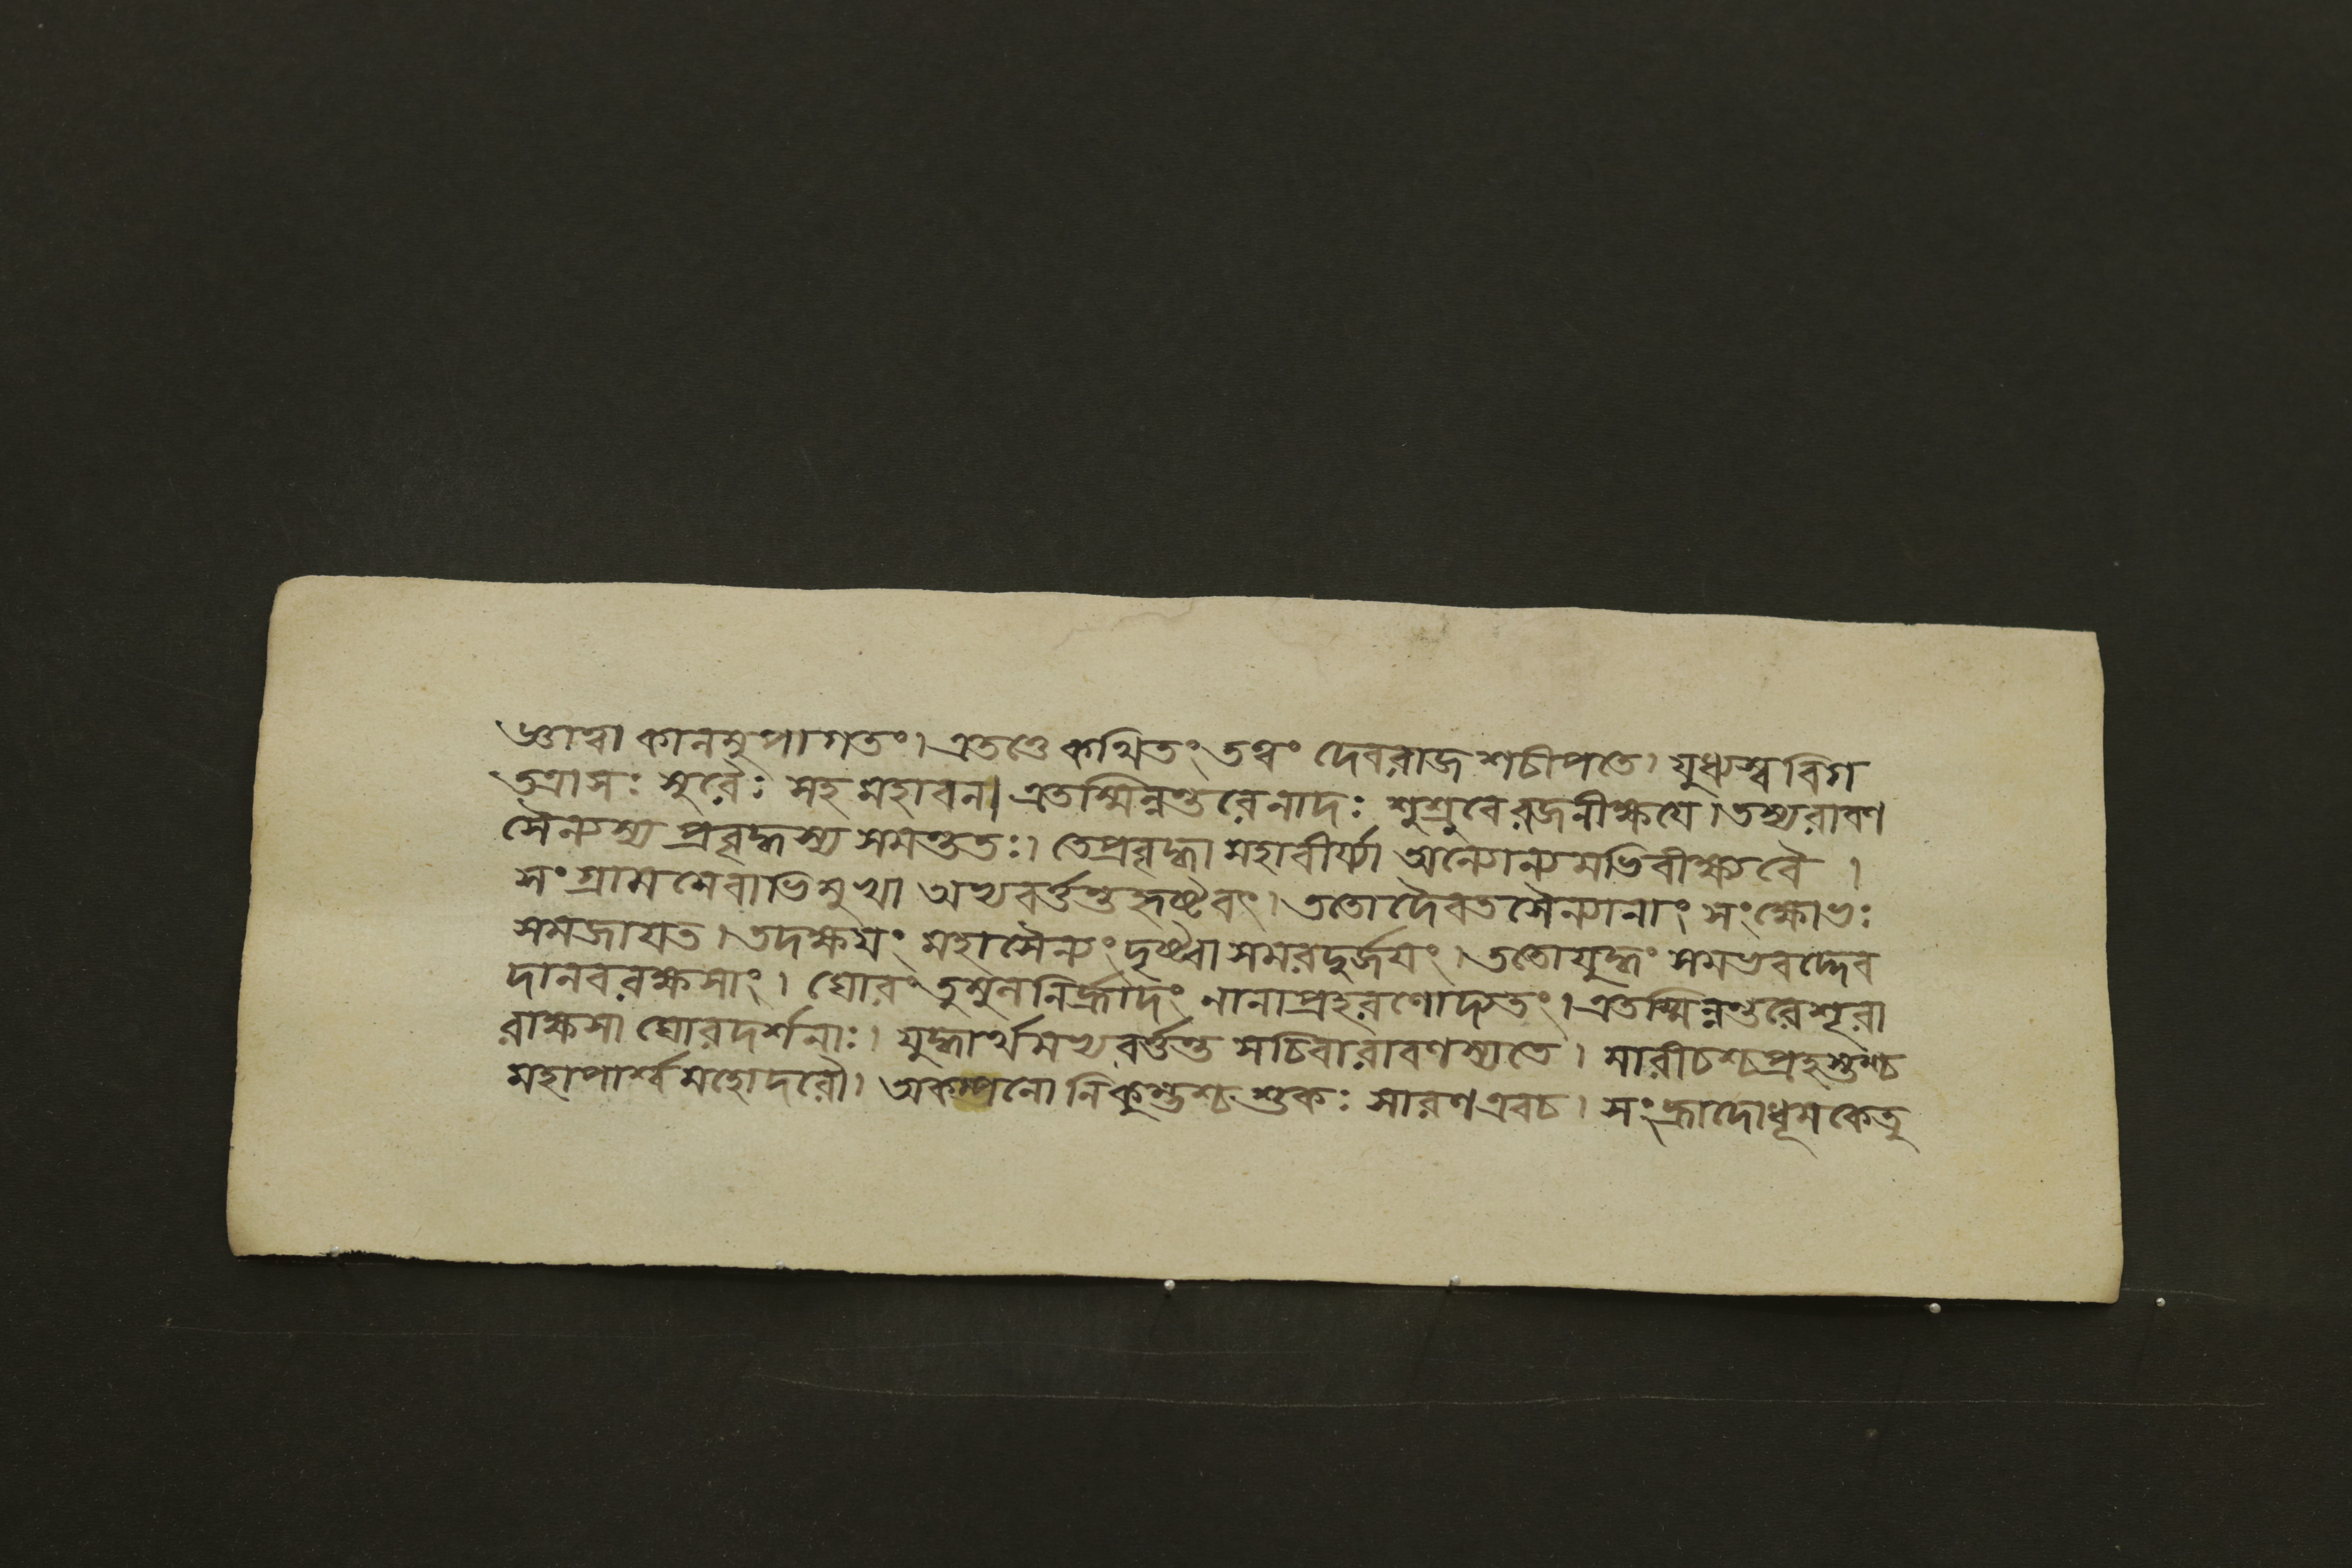 জ্ঞাত্বা কালমুপাগতং। এতত্তে কথিতং তত্ত্বং দেবরাজ শচীপতে। যুধ্যস্ব বিগ
তত্রাসঃ সুরৈঃ সহ মহাবল। এতস্মিন্নন্তরে নাদঃ শুশ্রুবে রজনীক্ষযে। তস্য রাবণ
সৈন্যস্য প্রবৃদ্ধস্য সমন্ততঃ। তে প্রবৃদ্ধা মহাবীর্য্যা অন্যোন্যমভিবীক্ষ্য বৈ।
সংগ্রামমেবাভিমুখা অভ্যবর্ত্তন্ত হৃষ্টবৎ। ততো দৈবতসৈন্যানাং সংক্ষোভঃ
সমজাযত। তদক্ষযং মহাসৈন্যং দৃষ্ট্বা সমরদুর্জযং। ততো যুদ্ধং সমভবদ্দেব
দানবরক্ষসাং। ঘোরং তুমুলনির্হ্রাদং নানাপ্রহরণোদ্যতং। এতস্মিন্নন্তরে শূরা
রাক্ষসা ঘোরদর্শনাঃ। যুদ্ধার্থমভ্যবর্ত্তন্ত সচিবা রাবণস্য তে। মারীচশ্চ প্রহস্তশ্চ
মহাপার্শ্বমহোদরৌ। অকম্পনো নিকুম্ভশ্চ শুকঃ সারণ এবচ। সংহ্রাদো ধূমকেতু